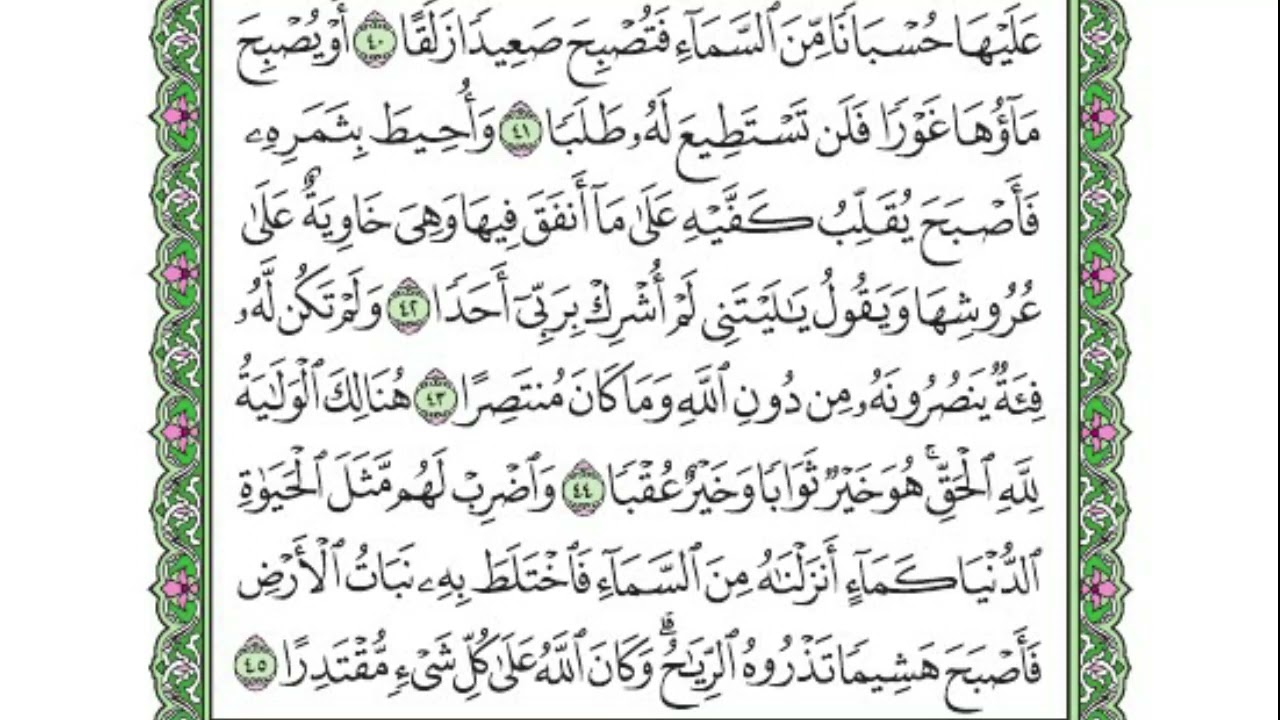 عَلَيْهَا حُسْبَانًا مِّنَ ٱلسَّمَآءِ فَتُصْبِحَ صَعِيدًا زَلَقًا ٤٠ أَوْ يُصْبِحَ
مَآؤُهَا غَوْرًا فَلَن تَسْتَطِيعَ لَهُۥ طَلَبًا ٤١ وَأُحِيطَ بِثَمَرِهِۦ
فَأَصْبَحَ يُقَلِّبُ كَفَّيْهِ عَلَىٰ مَآ أَنفَقَ فِيهَا وَهِىَ خَاوِيَةٌ عَلَىٰ
عُرُوشِهَا وَيَقُولُ يَـٰلَيْتَنِى لَمْ أُشْرِكْ بِرَبِّىٓ أَحَدًا ٤٢ وَلَمْ تَكُن لَّهُۥ
فِئَةٌ يَنصُرُونَهُۥ مِن دُونِ ٱللَّهِ وَمَا كَانَ مُنتَصِرًا ٤٣ هُنَالِكَ ٱلْوَلَـٰيَةُ
لِلَّهِ ٱلْحَقِّ ۚ هُوَ خَيْرٌ ثَوَابًا وَخَيْرٌ عُقْبًا ٤٤ وَٱضْرِبْ لَهُم مَّثَلَ ٱلْحَيَوٰةِ
ٱلدُّنْيَا كَمَآءٍ أَنزَلْنَـٰهُ مِنَ ٱلسَّمَآءِ فَٱخْتَلَطَ بِهِۦ نَبَاتُ ٱلْأَرْضِ
فَأَصْبَحَ هَشِيمًا تَذْرُوهُ ٱلرِّيَـٰحُ ۗ وَكَانَ ٱللَّهُ عَلَىٰ كُلِّ شَىْءٍ مُّقْتَدِرًا ٤٥